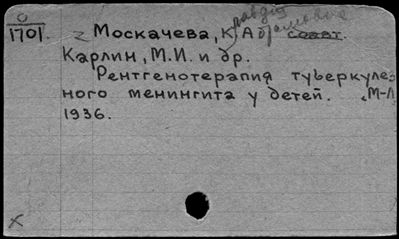 0
1701. Москачева, К.А. соавт.
Карлин, М.И. и др.
Рентгенотерапия туберкулез
ного менингита у детей. М-Л
1936.
x